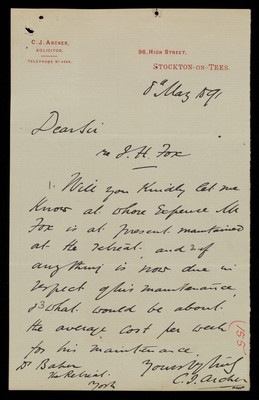 C. J. ARCHER,
SOLICITOR.
96, HIGH STREET,
STOCKTON-ON-TEES.
8th May 1891
Dear Sir
re J. H. Fox
1. Will you kindly let me
know at whose expense Mr
Fox is at present maintained
at the retreat. and 2 if
anything is now due in
respect of his maintenance,
& 3 what would be about
the average cost per week
for his maintenance
Yours truly
C. J. Archer
Dr Baker
The Retreat
York
155